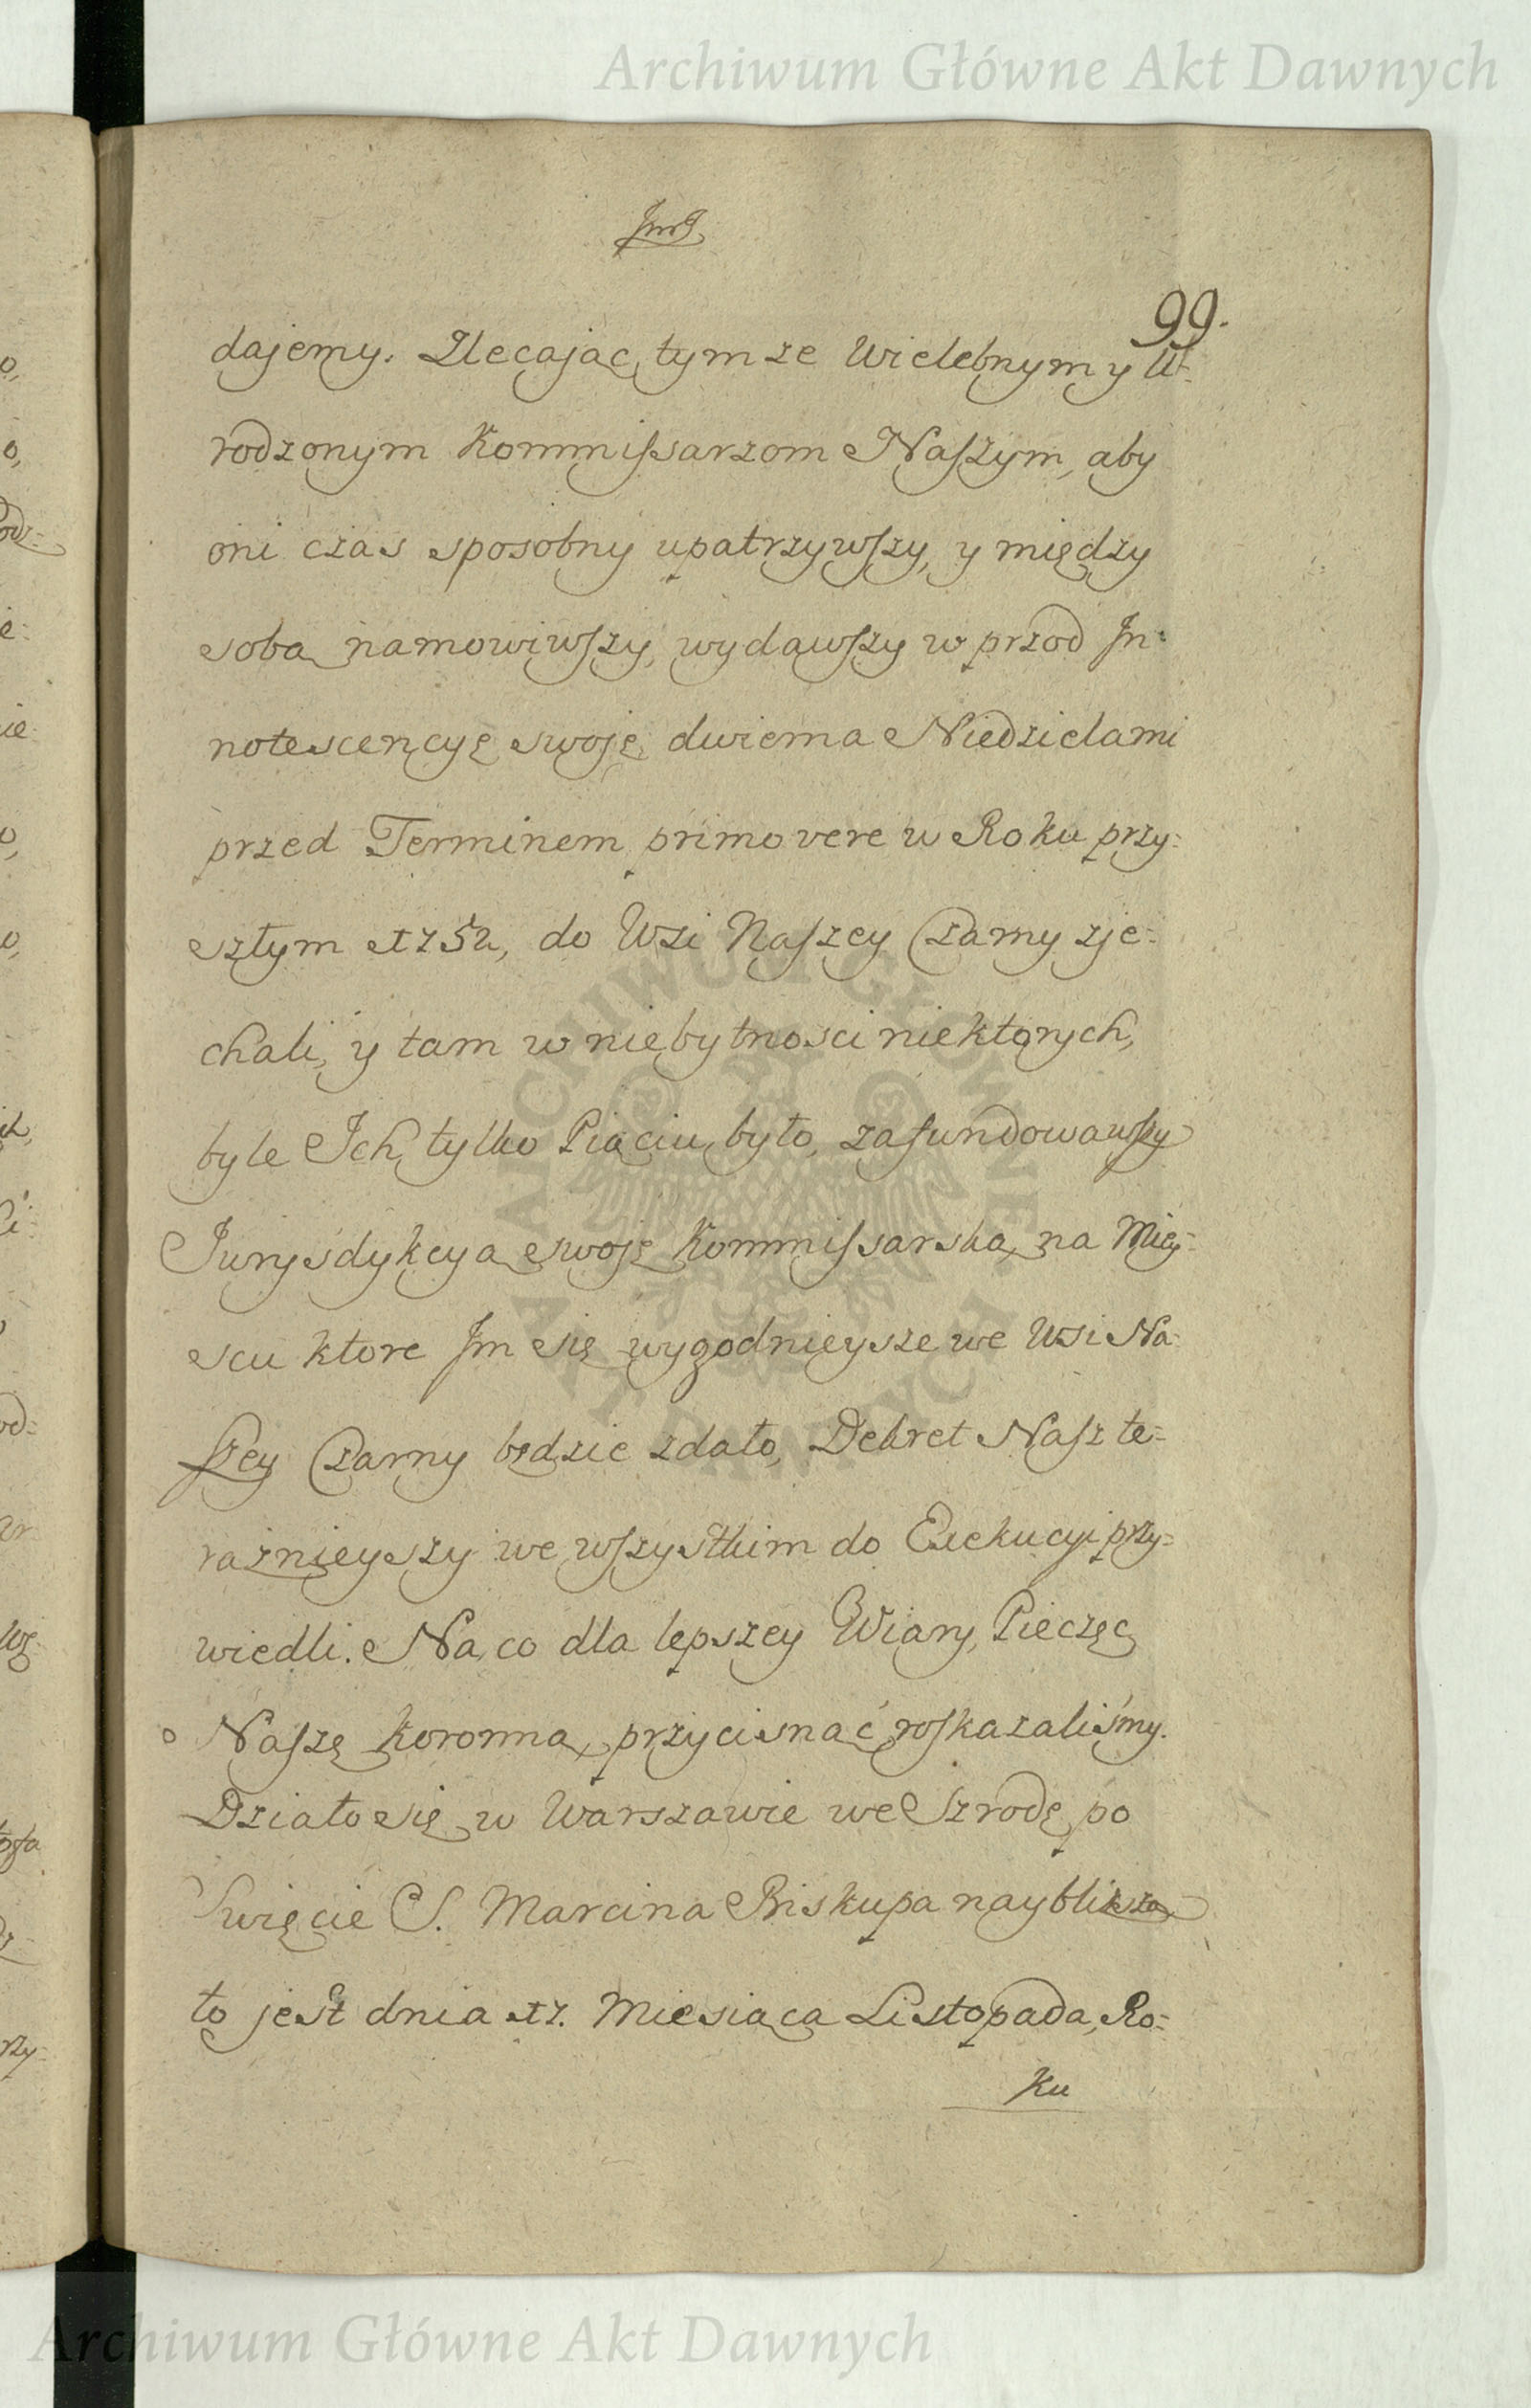 Archiwum Główne Akt Dawnych
99.
dajemy. Zlecając tym ze Wielebnym y U-
rodzonym Kommissarzom Naszym, aby
oni czas sposobny upatrzywszy, y między
sobą namowiwszy, wydawszy w przod In-
notescencyę swoję dwiema Niedzielami
przed Terminem primo vere w Roku przy-
szłym 1752, do Wsi Naszey Czarny zje-
chali, y tam w niebytnosci niektorych,
byle Ich tylko Piąciu było, zafundowawszy
Jurysdykcyą swoję Kommissarską na Miey-
scu ktore Im się wygodnieysze we Wsi Na-
szey Czarny będzie zdało, Dekret Nasz te-
raznieyszy we wszystkim do Exekucyi przy-
wiedli. Na co dla lepszey Wiary, Pieczęć
Naszę Koronną przycisnąć roskazaliśmy.
Działo się w Warszawie we Szrodę po
Swięcie S. Marcina Biskupa naybliższą
to jest dnia 17. Miesiąca Listopada, Ro-
ku
ARCHIWUM GŁÓWNE AKT DAWNYCH
Archiwum Główne Akt Dawnych